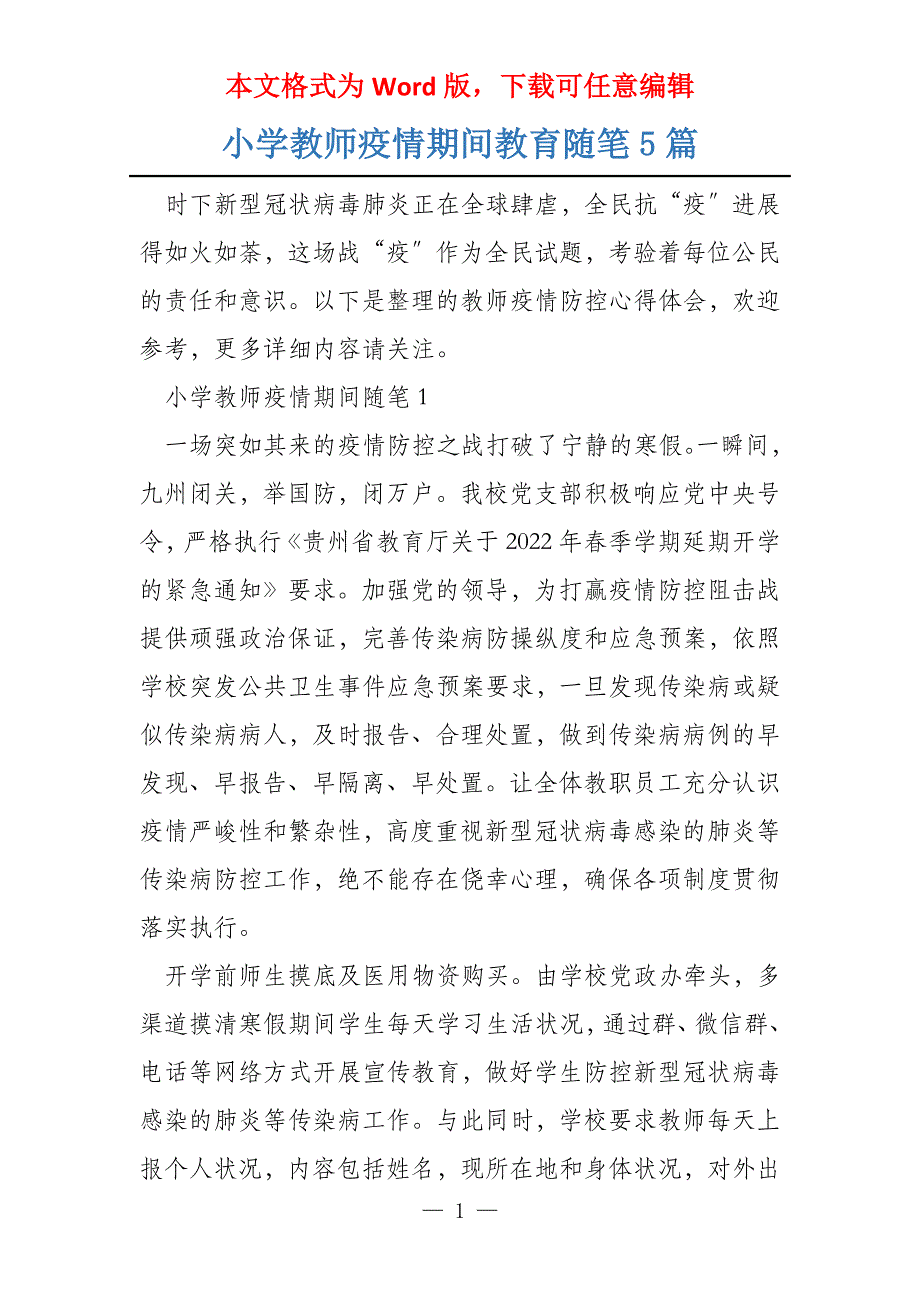 本文格式为 Word 版，下载可任意编辑
小学教师疫情期间教育随笔 5 篇
时下新型冠状病毒肺炎正在全球肆虐，全民抗“疫〞进展
得如火如荼，这场战“疫〞作为全民试题，考验着每位公民
的责任和意识。以下是整理的教师疫情防控心得体会，欢迎
参考，更多详细内容请关注。
小学教师疫情期间随笔 1
一场突如其来的疫情防控之战打破了宁静的寒假。一瞬间，
九州闭关，举国防，闭万户。我校党支部积极响应党中央号
令，严格执行《贵州省教育厅关于 2022 年春季学期延期开学
的紧急通知》要求。加强党的领导，为打赢疫情防控阻击战
提供顽强政治保证，完善传染病防操纵度和应急预案，依照
学校突发公共卫生事件应急预案要求，一旦发现传染病或疑
似传染病病人，及时报告、合理处置，做到传染病病例的早
发现、早报告、早隔离、早处置。让全体教职员工充分认识
疫情严峻性和繁杂性，高度重视新型冠状病毒感染的肺炎等
传染病防控工作，绝不能存在侥幸心理，确保各项制度贯彻
落实执行。
开学前师生摸底及医用物资购买。由学校党政办牵头，多
渠道摸清寒假期间学生每天学习生活状况，通过群、微信群、
电话等网络方式开展宣传教育，做好学生防控新型冠状病毒
感染的肺炎等传染病工作。与此同时，学校要求教师每天上
报个人状况，内容包括姓名，现所在地和身体状况，对外出
— 1 —